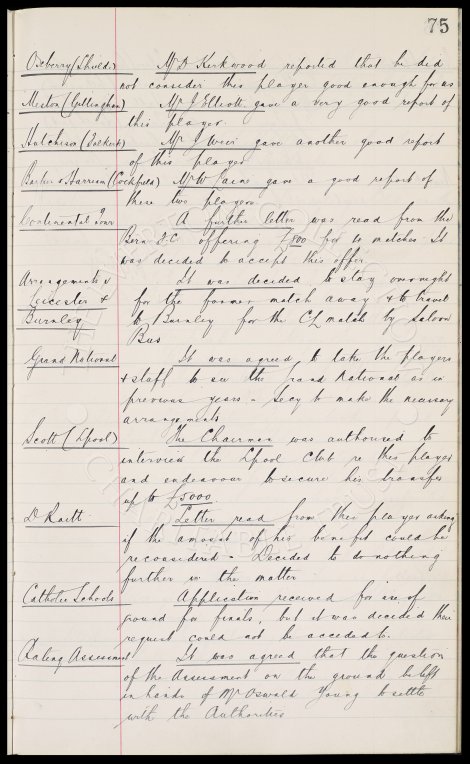 75
Oxberry (Shields) Mr D. Kirkwood reported that he did
not consider this player good enough for us
Meston (Gillingham) Mr J Elliott gave a very good report of
this player.
Hutchison (Falkirk) Mr J Weir gave another good report
of this player
Barker & Harrison (Cockfield) Mr W Cains gave a good report of
these two players
Continental Tour A further letter was read from the
Bern F.C. offering for 10 matches. It
was decided to accept this offer
Arrangements It was decided to stay overnight
Leicester & for the former match away & to travel
Burnley to Burnley for the CL match by Saloon
Bus
Grand National It was agreed to take the players
& staff to see the Grand National as in
previous years - Secy to make the necessary
arrangements
Scott (Lpool) The Chairman was authorised to
interview the Lpool Club re this player
and endeavour to secure his transfer
up to £5000
D Raitt Letter read from this player asking
if the amount of his benefit could be
reconsidered - Decided to do nothing
further in the matter
Catholic Schools Application received for use of
ground for finals, but it was decided their
request could not be acceded to.
Rating Assessment It was agreed that the question
of the Assessment on the ground be left
in hands of Mr Oswald Young to settle
with the Authorities